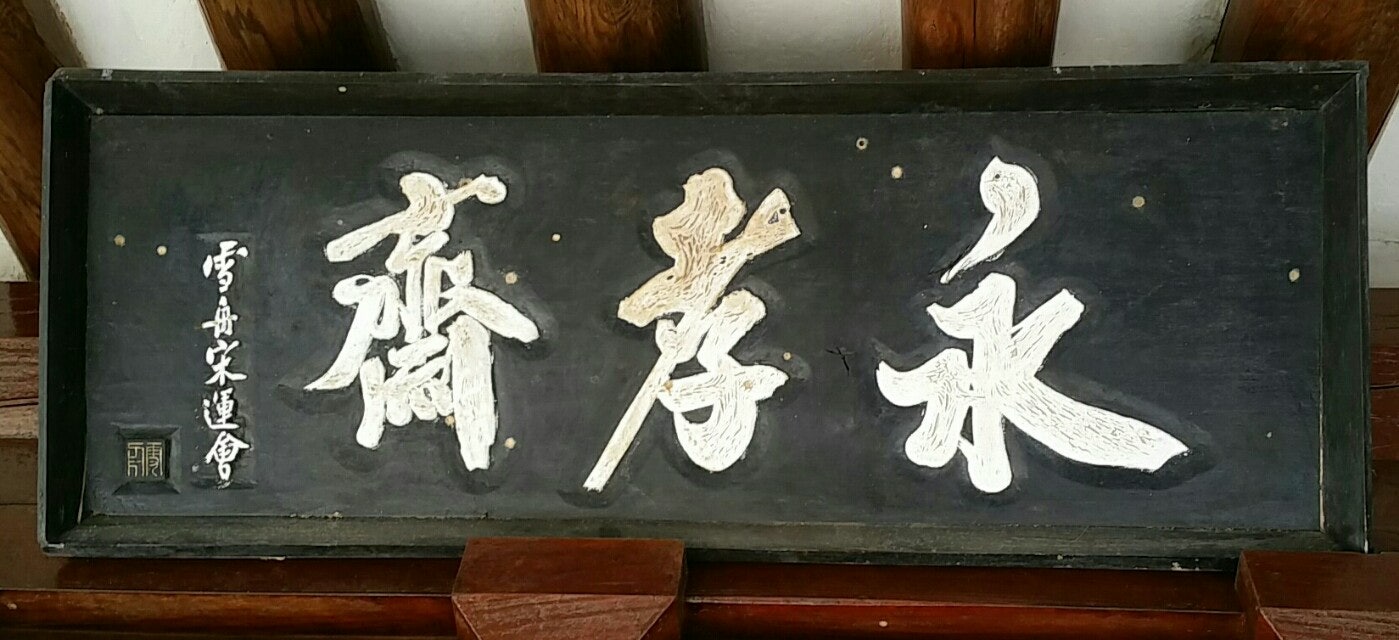 永孝齋
雪舟宋運會